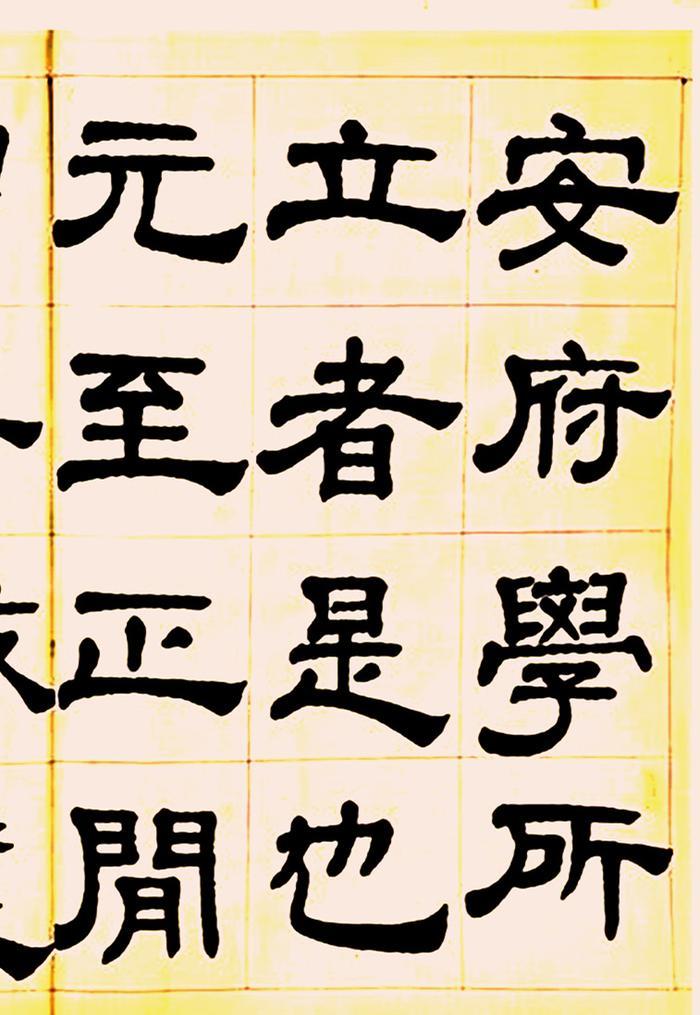 安府學所
立者是也
元至正閒